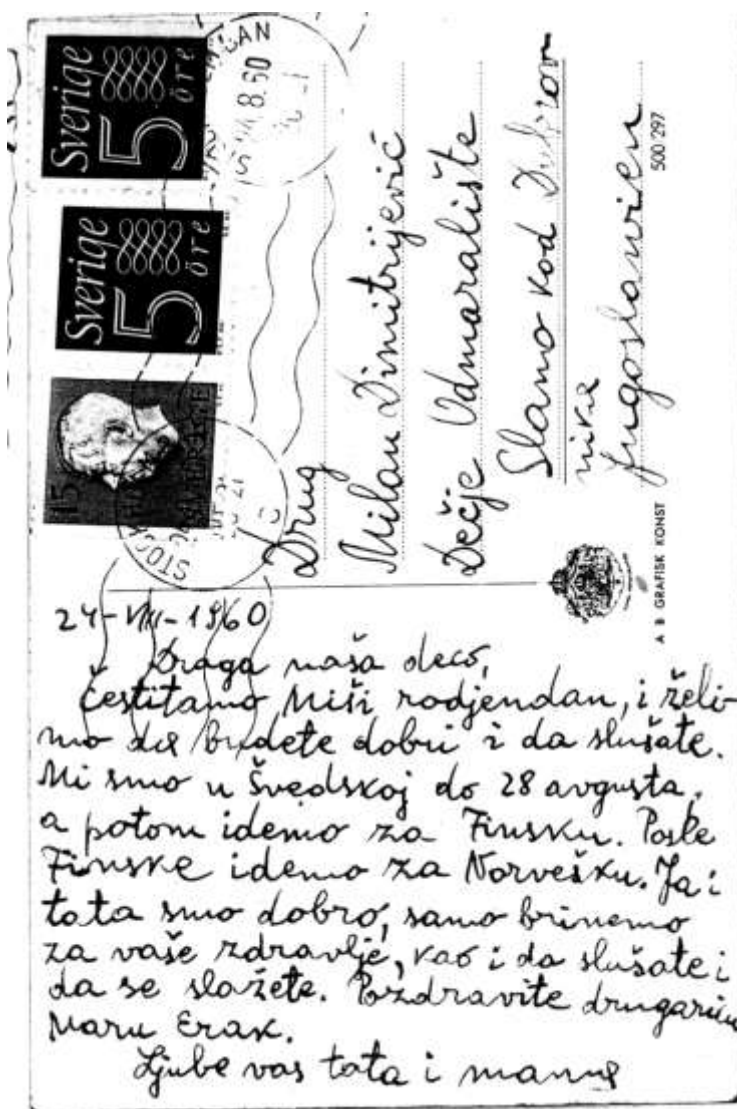 Sverige
5 öre
Sverige
5 öre
15
STOCK
24.8.60
Drug
Milan Dimitrijević
Dečje Odmaralište
Slano kod Dubrov
nika
Jugoslawien
500/297
A B GRAFISK KONST
24-VIII-1960
Draga naša deco,
čestitamo Miši rodjendan, i želi-
mo da budete dobri i da slušate.
Mi smo u Švedskoj do 28 avgusta,
a potom idemo za Finsku. Posle
Finske idemo za Norvešku. Ja i
tata smo dobro, samo brinemo
za vaše zdravlje, kao i da slušate i
da se slažete. Pozdravite drugaricu
Maru Erak.
Ljube vas tata i mama